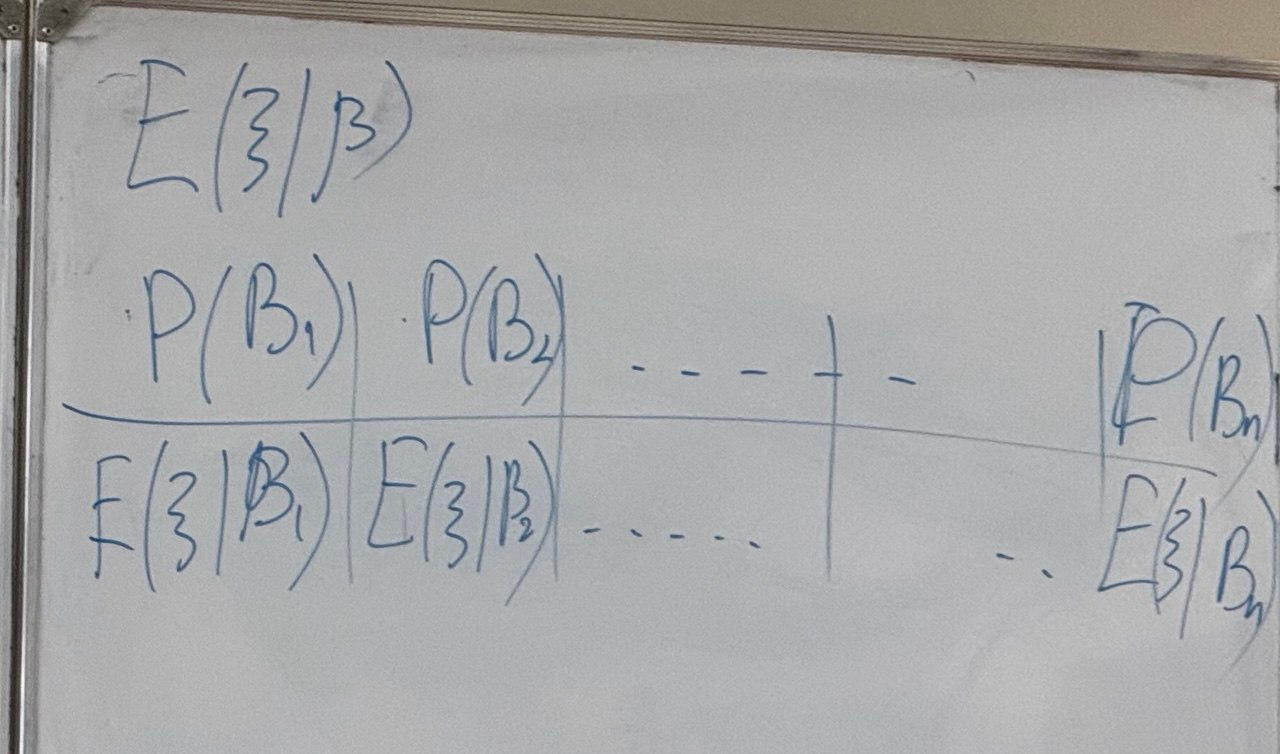 E(ξ|β)
P(B₁) | P(B₂) | - - - + - | P(Bₙ)
E(ξ|B₁) | E(ξ|B₂) | - . - . . | - . E(ξ|Bₙ)